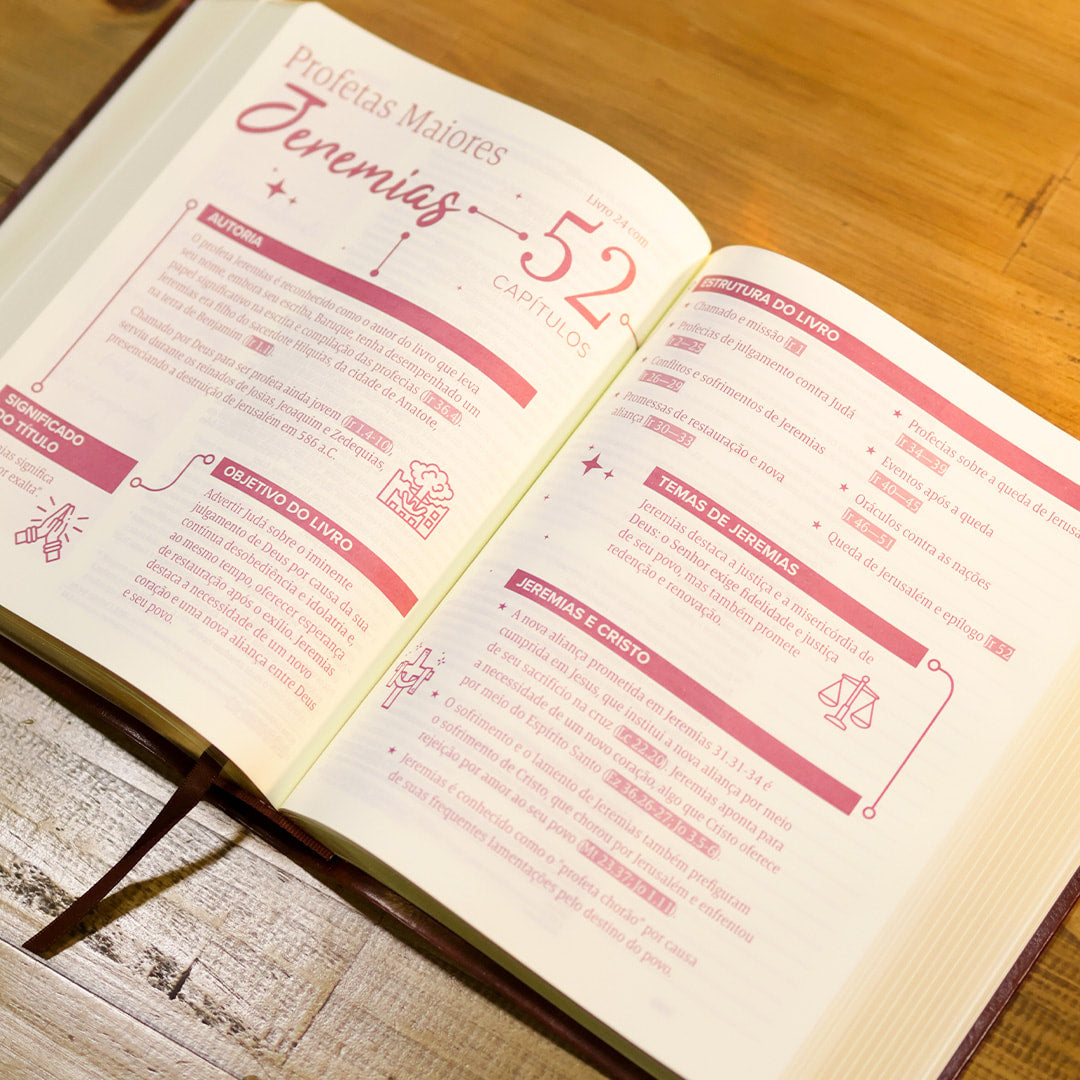 Profetas Maiores
Jeremias
Livro 24 com
52
CAPÍTULOS
AUTORIA
O profeta Jeremias é reconhecido como o autor do livro que leva
seu nome, embora seu escriba, Baruque, tenha desempenhado um
papel significativo na escrita e compilação das profecias (Jr 36.4).
Jeremias era filho do sacerdote Hilquias, da cidade de Anatote,
na terra de Benjamim (Jr 1.1).
Chamado por Deus para ser profeta ainda jovem (Jr 1.4-10),
serviu durante os reinados de Josias, Jeoaquim e Zedequias,
presenciando a destruição de Jerusalém em 586 a.C.
SIGNIFICADO
DO TÍTULO
significa
exalta".
OBJETIVO DO LIVRO
Advertir Judá sobre o iminente
julgamento de Deus por causa da sua
contínua desobediência e idolatria e,
ao mesmo tempo, oferecer esperança
de restauração após o exílio. Jeremias
destaca a necessidade de um novo
coração e uma nova aliança entre Deus
e seu povo.
ESTRUTURA DO LIVRO
Chamado e missão Jr 1
Profecias de julgamento contra Judá
Jr 2—25
Conflitos e sofrimentos de Jeremias
Jr 26—29
Promessas de restauração e nova
aliança Jr 30—33
Profecias sobre a queda de
Jr 34—39
Eventos após a queda
Jr 40—45
Oráculos contra as nações
Jr 46—51
Queda de Jerusalém e epílogo Jr 52
TEMAS DE JEREMIAS
Jeremias destaca a justiça e a misericórdia de
Deus: o Senhor exige fidelidade e justiça
de seu povo, mas também promete
redenção e renovação.
JEREMIAS E CRISTO
A nova aliança prometida em Jeremias 31.31-34 é
cumprida em Jesus, que institui a nova aliança por meio
de seu sacrifício na cruz (Lc 22.20). Jeremias aponta para
a necessidade de um novo coração, algo que Cristo oferece
por meio do Espírito Santo (Ez 36.26-27; Jo 3.5-6).
O sofrimento e o lamento de Jeremias também prefiguram
o sofrimento de Cristo, que chorou por Jerusalém e enfrentou
rejeição por amor ao seu povo (Mt 23.37; Jo 1.11).
Jeremias é conhecido como o "profeta chorão" por causa
de suas frequentes lamentações pelo destino do povo.